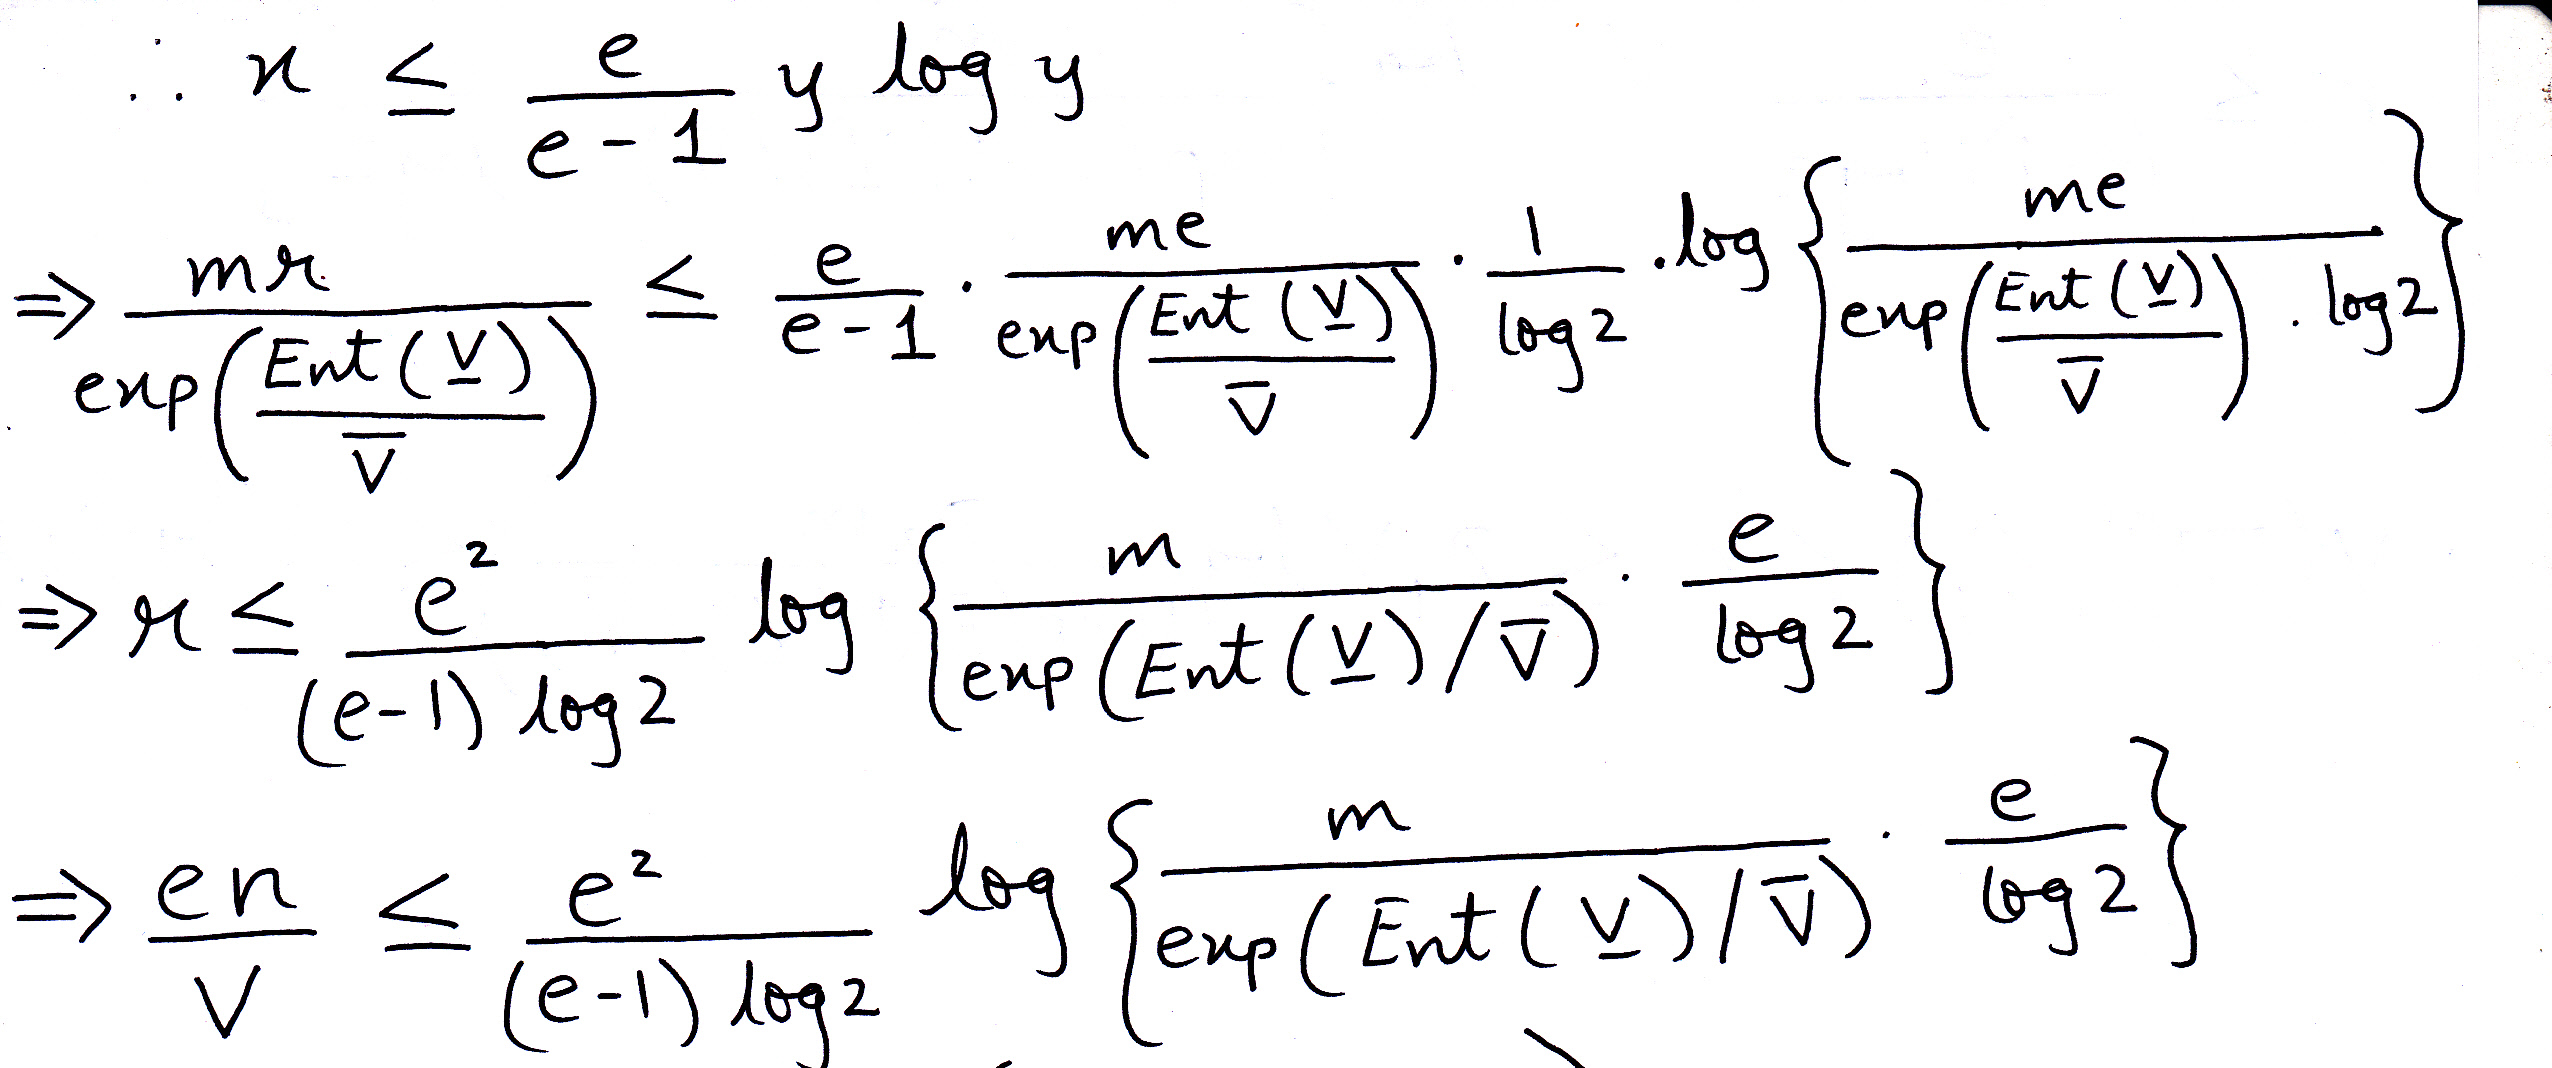 ∴ x ≤ \frac{e}{e-1} y log y
⇒ \frac{mr}{exp(\frac{Ent(\underline{V})}{\overline{V}})} ≤ \frac{e}{e-1} · \frac{me}{exp(\frac{Ent(\underline{V})}{\overline{V}})} · \frac{1}{log 2} · log { \frac{me}{exp(\frac{Ent(\underline{V})}{\overline{V}}) · log 2} }
⇒ r ≤ \frac{e^2}{(e-1) log 2} log { \frac{m}{exp(Ent(\underline{V})/\overline{V})} · \frac{e}{log 2} }
⇒ \frac{en}{V} ≤ \frac{e^2}{(e-1) log 2} log { \frac{m}{exp(Ent(\underline{V})/\overline{V})} · \frac{e}{log 2} }